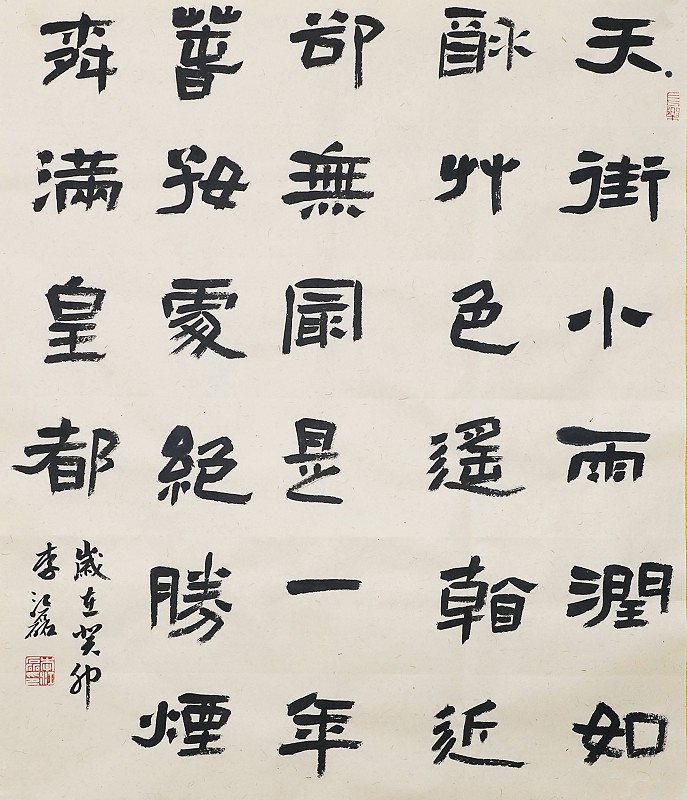 天街小雨潤如
酥艸色遙看近
卻無冣是一年
萅好處絕勝煙
桺滿皇都
歲在癸卯
李江磊